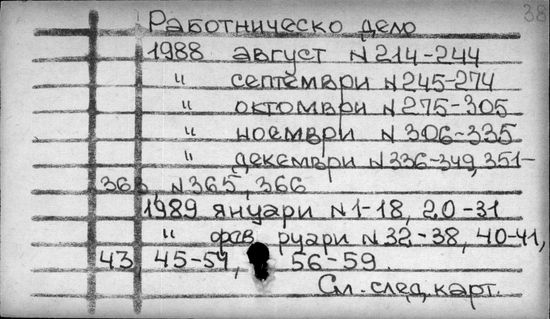 38
Работническо дело
1988 август N 214-244
" септември N 245-274
" октомври N 275-305
" ноември N 306-335
" декември N 336-349, 351-
363, N 365, 366
1989 януари N 1-18, 20-31
" фев руари N 32-38, 40-41,
43, 45-54, 56-59.
См. след. карт.